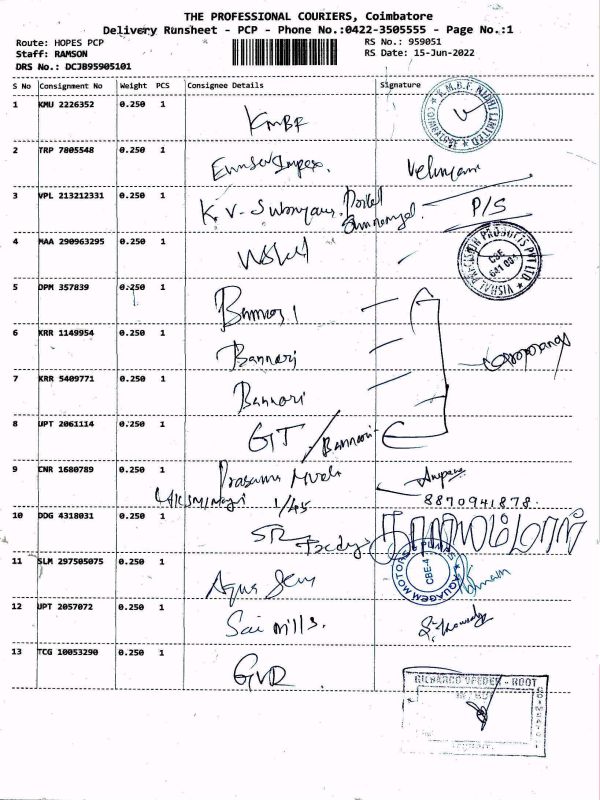 THE PROFESSIONAL COURIERS, Coimbatore
Delivery Runsheet - PCP - Phone No.:0422-3505555 - Page No.:1
Route: HOPES PCP RS No.: 959051
Staff: RAMSON RS Date: 15-Jun-2022
DRS No.: DCJ895905101
S No Consignment No Weight PCS Consignee Details Signature
1 KMU 2226352 0.250 1 KMBF
2 TRP 7805548 0.250 1
3 VPL 213212331 0.250 1 K.V. P/S
4 MAA 290963295 0.250 1
VISHAL PRECISION PRODUCTS PVT LTD
CBE
641 004
5 DPM 357839 0.250 1 Bannari
6 KRR 1149954 0.250 1 Bannari
7 KRR 5409771 0.250 1 Bannari
8 UPT 2061114 0.250 1 GIT / Bannari
9 CNR 1680789 0.250 1 Prasanna
1/45 8870941878.
10 DDG 4318031 0.250 1
11 SLM 297505075 0.250 1 Aqua Gem
AQUAGEM MOTORS & PUMPS
CBE-4
12 UPT 2057072 0.250 1 Sai Mills.
13 TCG 10053290 0.250 1 GVR